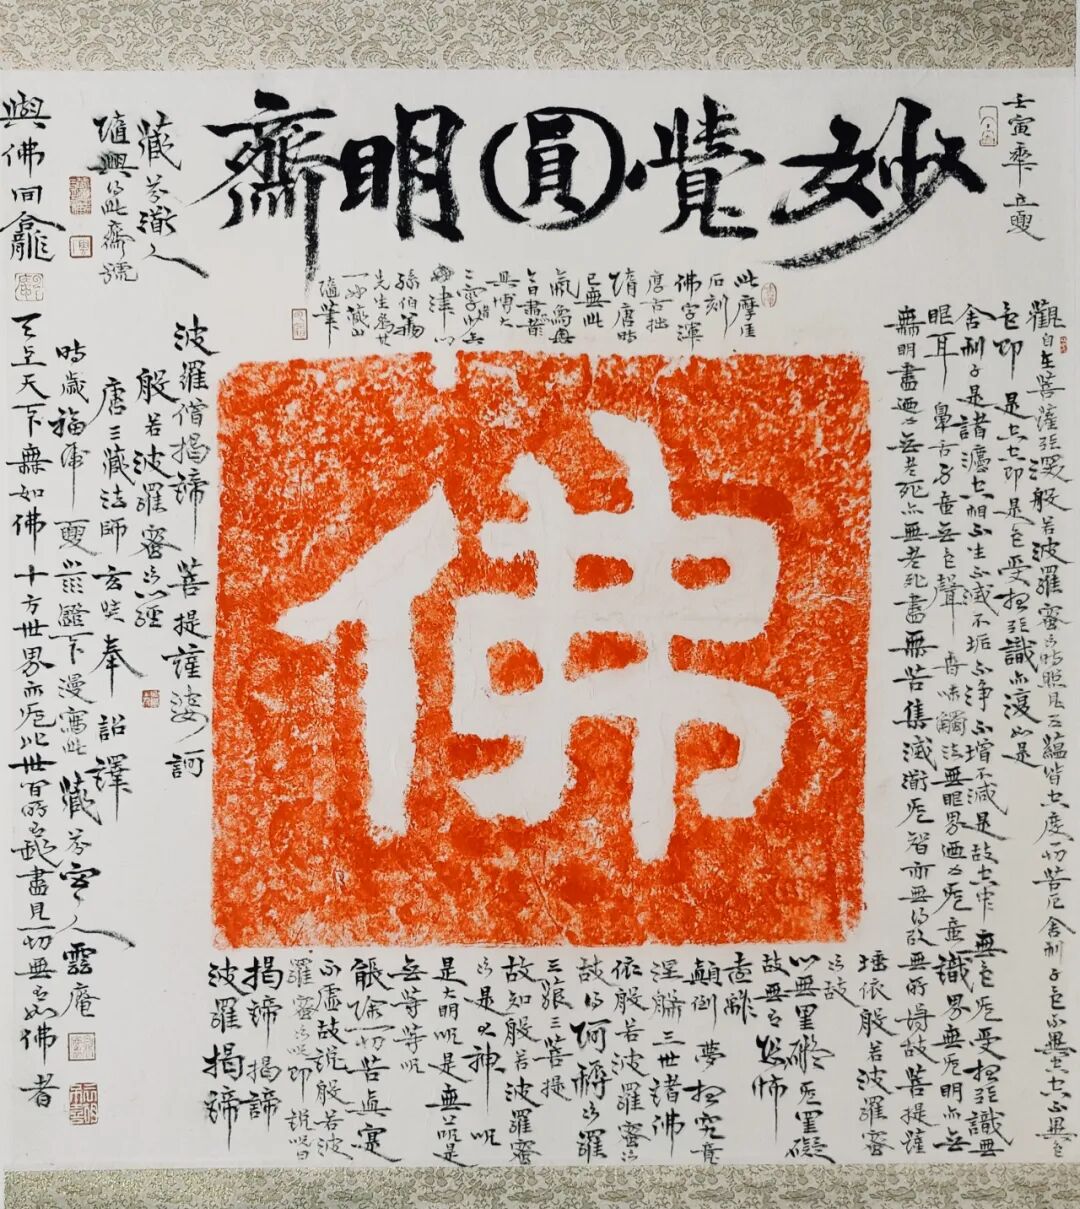 壬寅
妙覺圓明齋
藏
隨興
此齋號
與佛同龕
此摩崖
石刻
佛字渾
厚古拙
隋唐時
已無此
佛
觀自在菩薩行深般若波羅蜜多時照見五蘊皆空度一切苦厄舍利子色不異空空不異色
色即是空空即是色受想行識亦復如是
舍利子是諸法空相不生不滅不垢不淨不增不減是故空中無色無受想行識無
眼耳鼻舌身意無色聲香味觸法無眼界乃至無意識界無無明亦無
無明盡乃至無老死亦無老死盡無苦集滅道無智亦無得以無所得故菩提薩
埵依般若波羅蜜
多故
心無罣礙無罣礙
故無有恐怖
遠離
顛倒夢想究竟
涅槃三世諸佛
依般若波羅蜜多
故得阿耨多羅
三藐三菩提
故知般若波羅蜜
多是大神呪
是大明呪是無上呪是
無等等呪
能除一切苦真實
不虛故說般若波
羅蜜多呪即說呪曰
揭諦揭諦
波羅揭諦
波羅僧揭諦菩提薩婆訶
般若波羅蜜多心經
唐三藏法師玄奘奉詔譯
時歲福
燈下漫寫此藏
天上天下無如佛十方世界亦無比世間所有我盡見一切無有如佛者